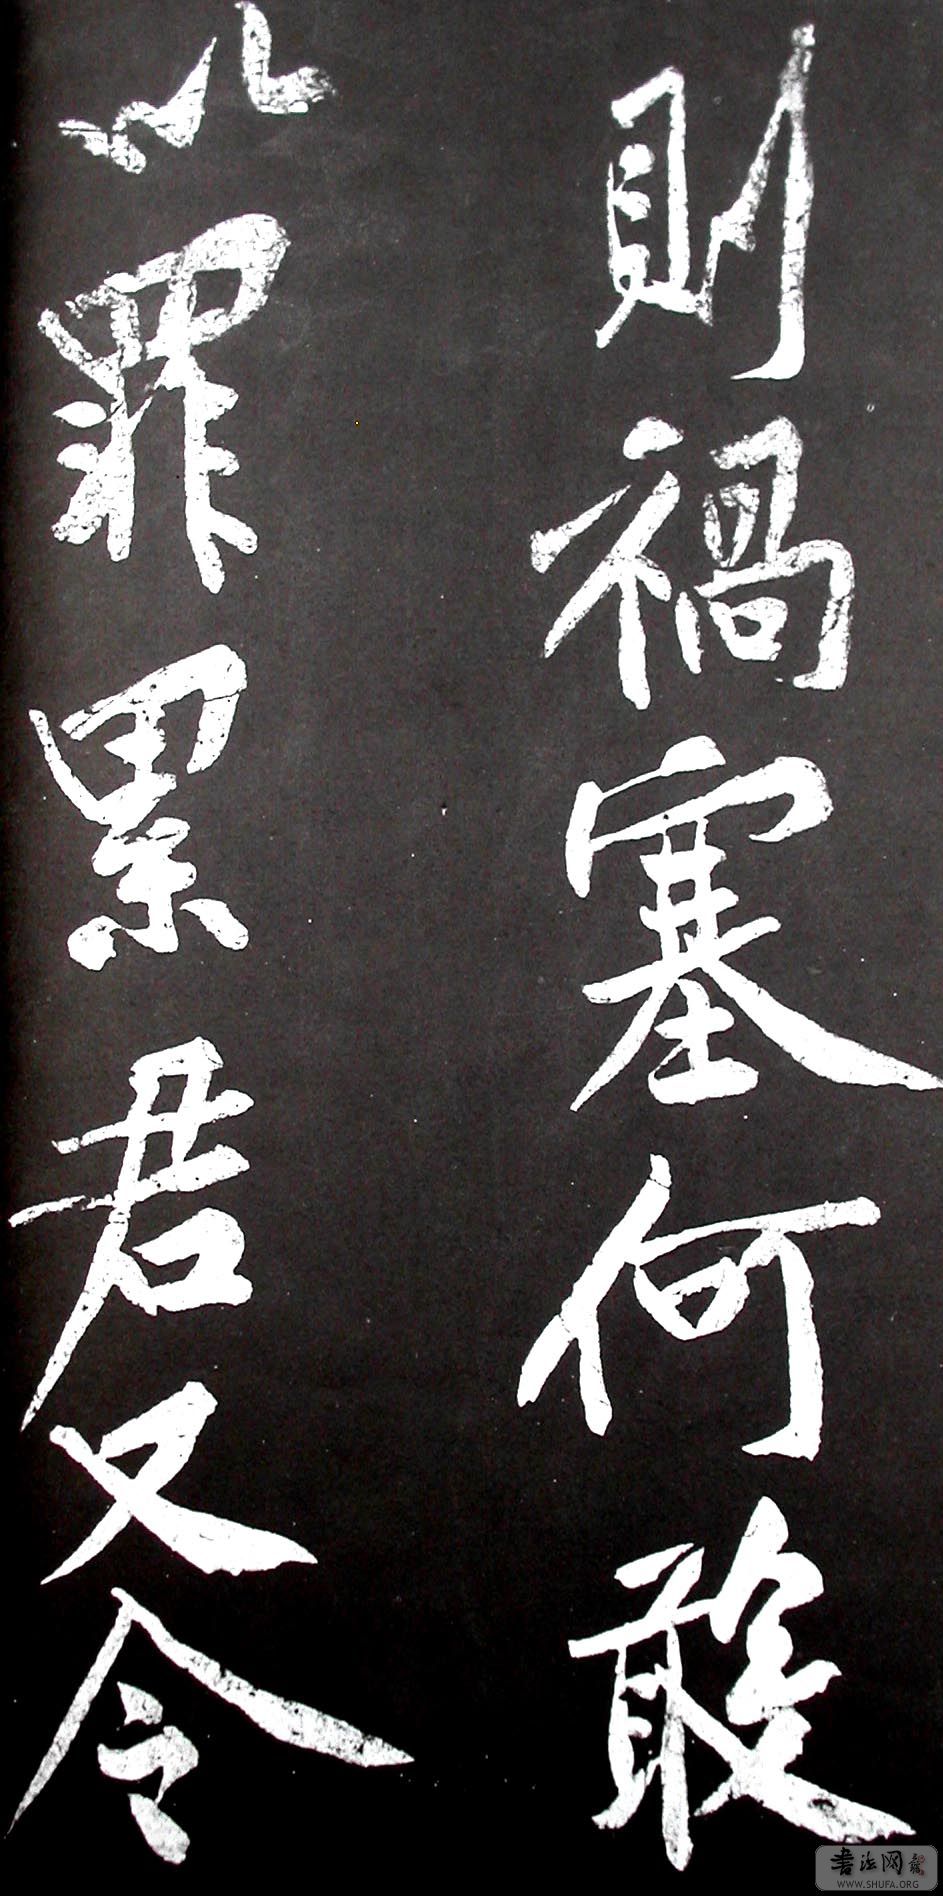 則禍塞何敢
以罪累君又令
書法网
WWW.SHUFA.ORG